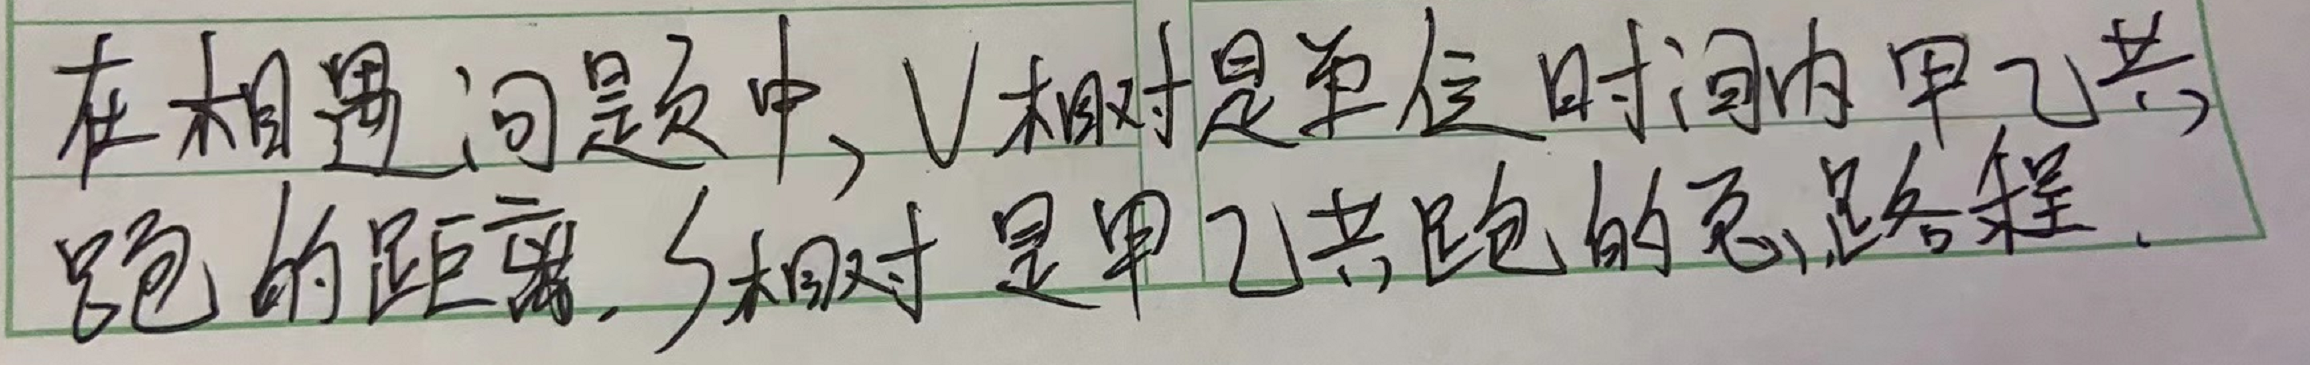 在相遇问题中,V相对是单位时间内甲乙共
跑的距离.S相对是甲乙共跑的总路程.